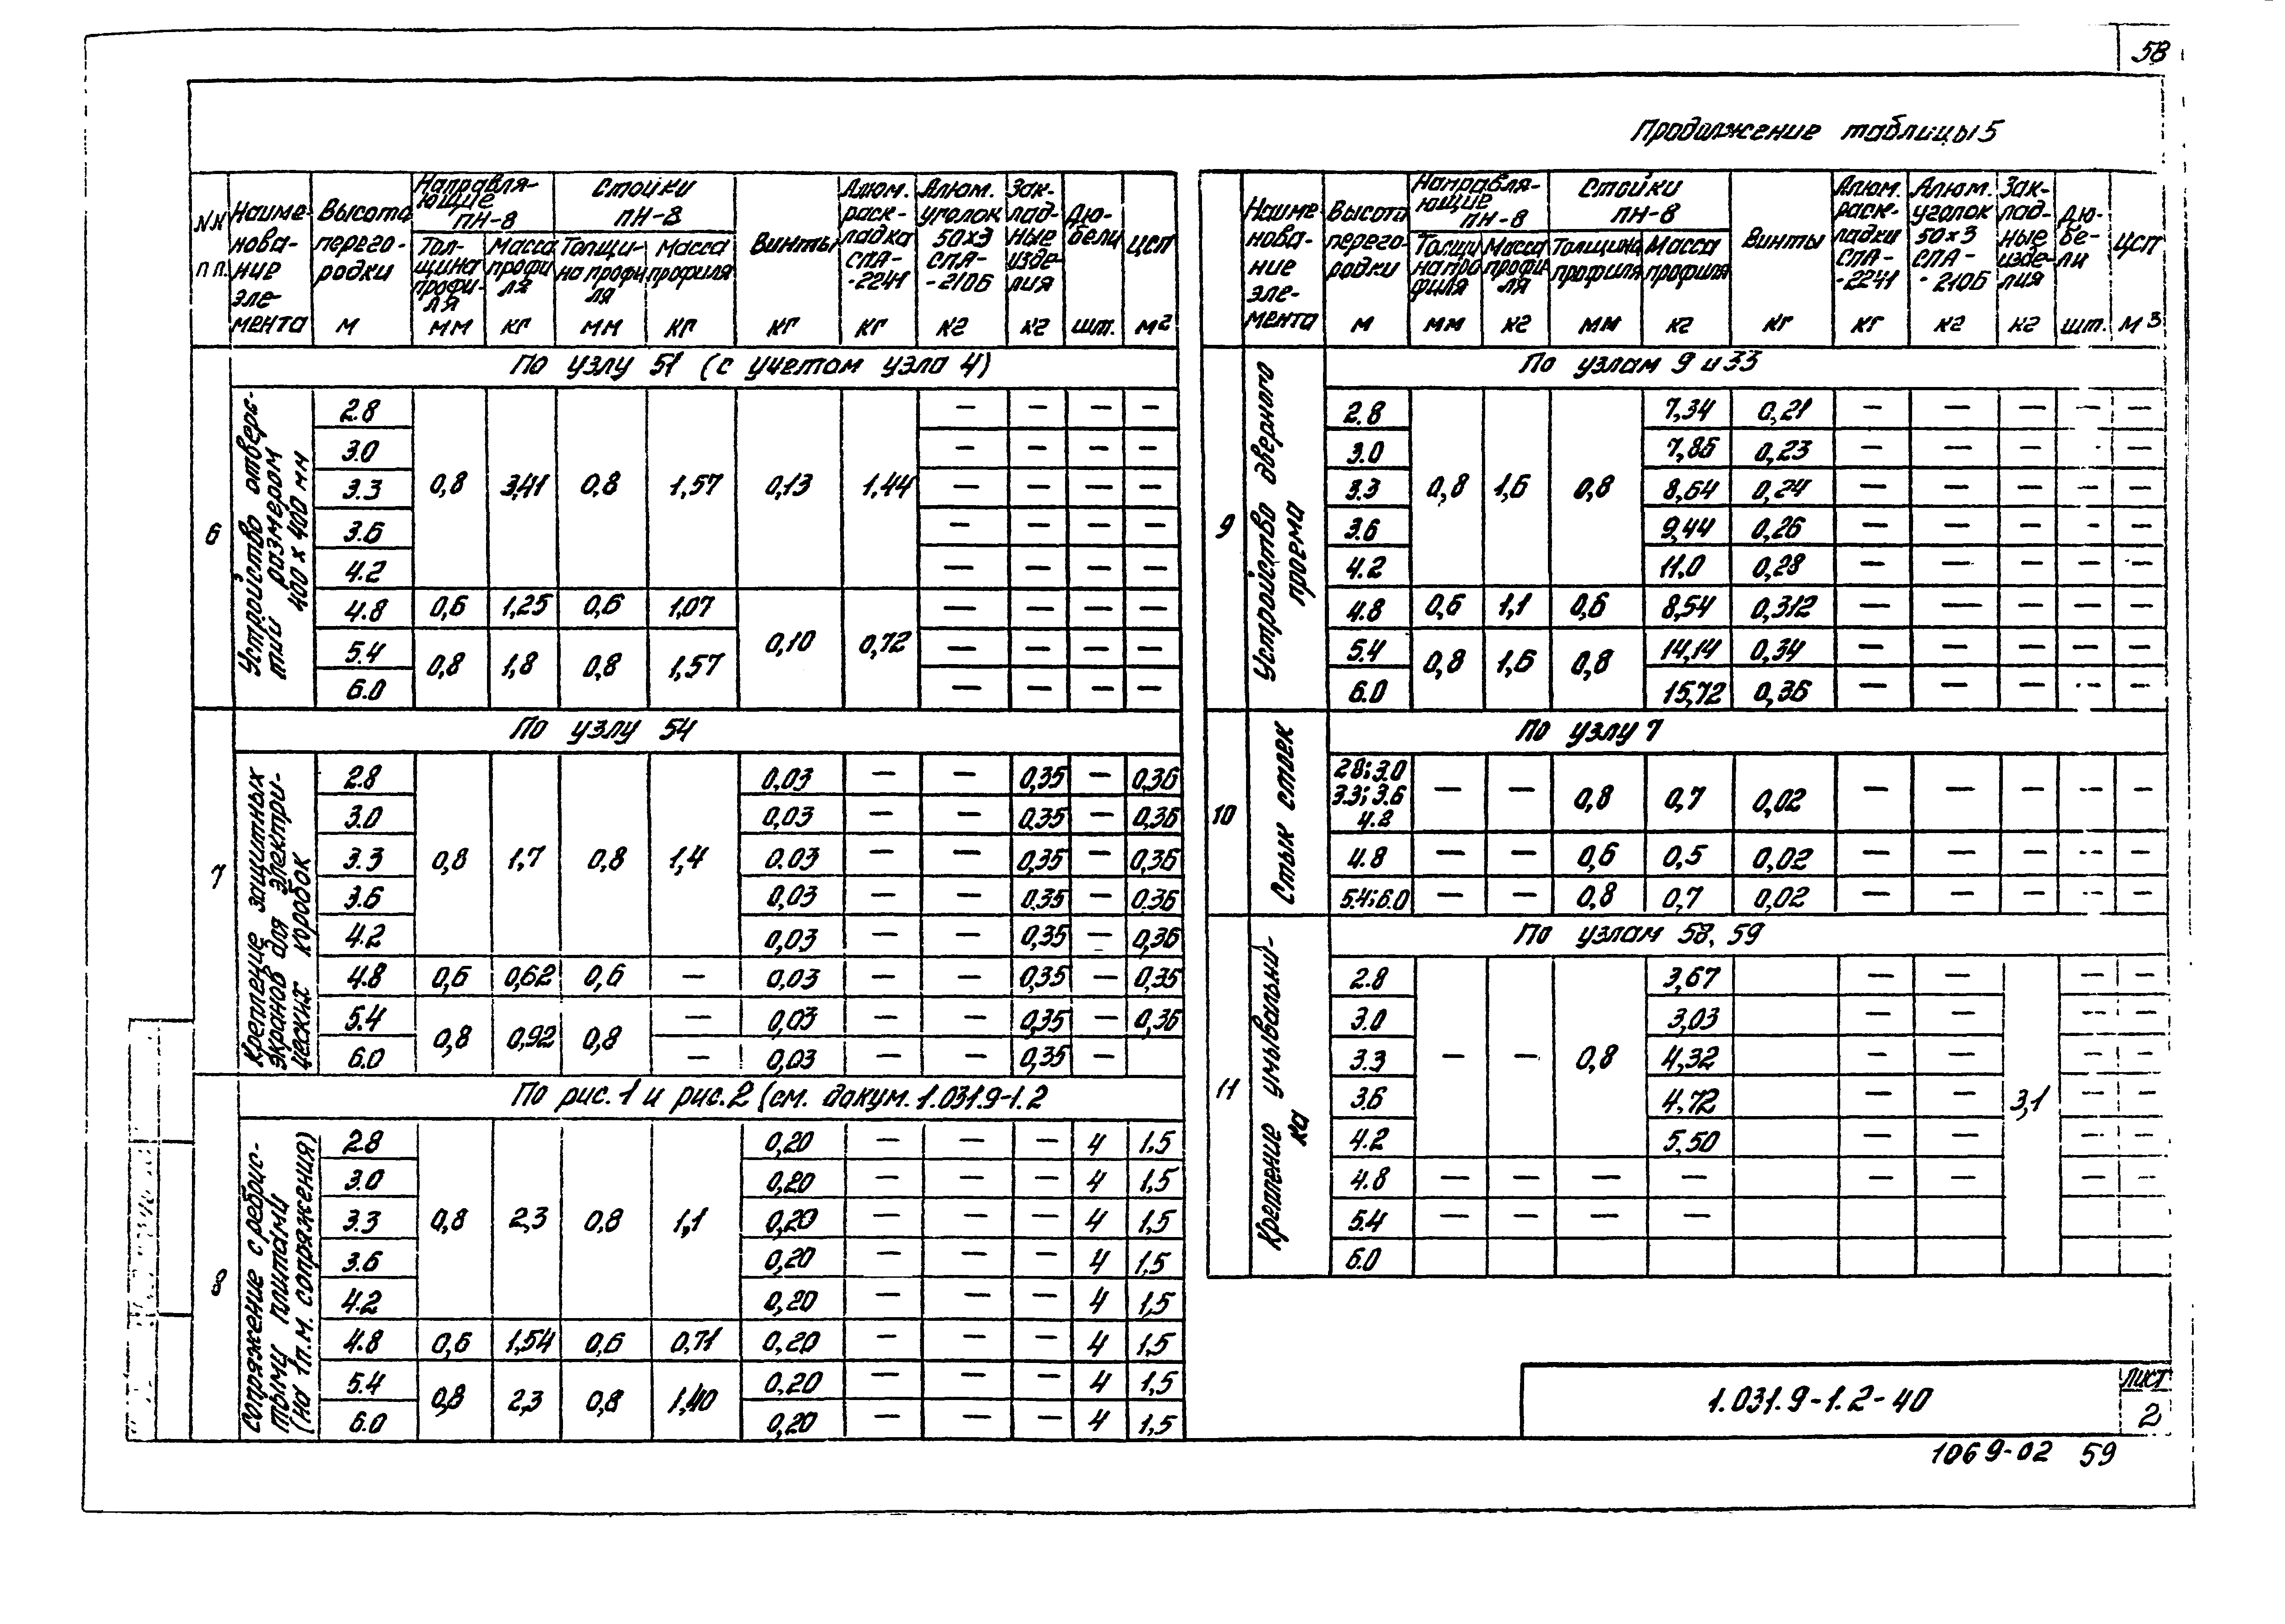 58
Продолжение таблицы 5
NN п п. | Наиме-нова-ние эле-мента | Высота перего-родки м | Направля-ющие ПН-8 | Стойки ПН-8 | Винты кг | Алюм. раск-ладка СПА-2241 кг | Алюм. уголок 50х3 СПА-2106 кг | Зак-лад-ные изде-лия кг | Дю-бели шт. | ЦСП м2
Тол-щина профи-ля мм | Масса профи ля кг | Толщи-на профи ля мм | Масса профиля кг
6 | Устройство отверс-тий размером 400 х 400 мм
По узлу 51 (с учетом узла 4)
2.8 | 0,8 | 3,41 | 0,8 | 1,57 | 0,13 | 1,44 | — | — | — | —
3.0 | — | — | — | —
3.3 | — | — | — | —
3.6 | — | — | — | —
4.2 | — | — | — | —
4.8 | 0,6 | 1,25 | 0,6 | 1,07 | 0,10 | 0,72 | — | — | — | —
5.4 | 0,8 | 1,8 | 0,8 | 1,57 | — | — | — | —
6.0 | — | — | — | —
7 | Крепление защитных экранов для электри-ческих коробок
По узлу 54
2.8 | 0,8 | 1,7 | 0,8 | 1,4 | 0.03 | — | — | 0,35 | — | 0,36
3.0 | 0,03 | — | — | 0.35 | — | 0,36
3.3 | 0.03 | — | — | 0,35 | — | 0,36
3.6 | 0,03 | — | — | 0.35 | — | 0.36
4.2 | 0,03 | — | — | 0,35 | — | 0,36
4.8 | 0,6 | 0,62 | 0,6 | — | 0,03 | — | — | 0,35 | — | 0,35
5.4 | 0,8 | 0,92 | 0,8 | — | 0,03 | — | — | 0,35 | — | 0,36
6.0 | — | 0,03 | — | — | 0,35 | —
8 | Сопряжение с ребрис-тыми плитами (на 1п.м. сопряжения)
По рис. 1 и рис. 2 (см. докум. 1.031.9-1.2
2.8 | 0,8 | 2,3 | 0,8 | 1,1 | 0,20 | — | — | — | 4 | 1,5
3.0 | 0,20 | — | — | — | 4 | 1,5
3.3 | 0,20 | — | — | — | 4 | 1,5
3.6 | 0,20 | — | — | — | 4 | 1,5
4.2 | 0,20 | — | — | — | 4 | 1,5
4.8 | 0,6 | 1,54 | 0,6 | 0,71 | 0,20 | — | — | — | 4 | 1,5
5.4 | 0,8 | 2,3 | 0,8 | 1,40 | 0,20 | — | — | — | 4 | 1,5
6.0 | 0,20 | — | — | — | 4 | 1,5
Наиме нова-ние эле-мента | Высота перего-родки м | Направля-ющие ПН-8 | Стойки ПН-8 | Винты кг | Алюм. раск-ладки СПА-2241 кг | Алюм. уголок 50х3 СПА-2106 кг | Зак-лад-ные изде-лия кг | Дю-бе-ли шт. | ЦСП м3
Толщи на про филя мм | Масса профи ля кг | Толщина профиля мм | Масса профиля кг
9 | Устройство дверного проема
По узлам 9 и 33
2.8 | 0,8 | 1,6 | 0,8 | 7,34 | 0,21 | — | — | — | — | —
3.0 | 7,86 | 0,23 | — | — | — | — | —
3.3 | 8,64 | 0,24 | — | — | — | — | —
3.6 | 9,44 | 0,26 | — | — | — | — | —
4.2 | 11.0 | 0,28 | — | — | — | — | —
4.8 | 0,6 | 1,1 | 0,6 | 8,54 | 0,312 | — | — | — | — | —
5.4 | 0,8 | 1,6 | 0,8 | 14,14 | 0,34 | — | — | — | — | —
6.0 | 15,72 | 0,36 | — | — | — | — | —
10 | Стык стоек
По узлу 7
2.8; 3.0 3.3; 3.6 4.2 | — | — | 0,8 | 0,7 | 0,02 | — | — | — | — | —
4.8 | — | — | 0,6 | 0,5 | 0,02 | — | — | — | — | —
5.4; 6.0 | — | — | 0,8 | 0,7 | 0,02 | — | — | — | — | —
11 | Крепление умывальни-ка
По узлам 58, 59
2.8 | — | — | 0,8 | 3,67 | — | — | 3,1 | — | —
3.0 | 3,03 | — | — | — | —
3.3 | 4,32 | — | — | — | —
3.6 | 4,72 | — | — | — | —
4.2 | 5,50 | — | — | — | —
4.8 | — | — | — | — | — | — | — | —
5.4 | — | — | — | —
6.0
1.031.9-1.2-40
Лист
2
1069-02 59